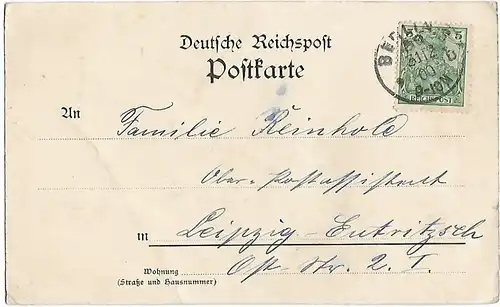 Deutsche Reichspost
Postkarte
5
BERLIN
31.12
00
8-10N
REICHSPOST
An Familie Reinhold
Ober-Postassistent
in Leipzig-Eutritzsch
Wohnung Ost-Str. 2. I.
(Straße und Hausnummer)